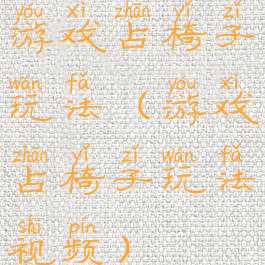 yóu xì zhān yǐ zǐ
游戏占椅子
wán fǎ yóu xì
玩法(游戏
zhān yǐ zǐ wán fǎ
占椅子玩法
shì pín
视频)